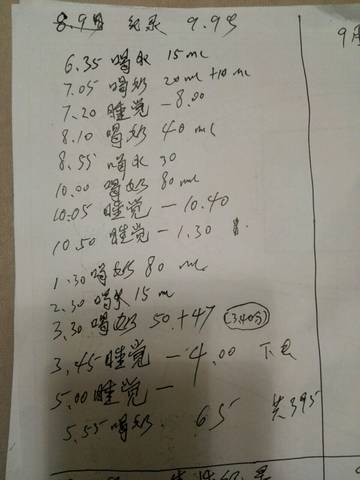 8.9月 纪录 9.9号
9月
6.35 喝水 15 ml
7.05 喝奶 20 ml + 10 ml
7.20 睡觉 — 8.00
8.10 喝奶 40 ml
8.55 喝水 30
10.00 喝奶 80 ml
10.05 睡觉 — 10.40
10.50 睡觉 — 1.30
1.30 喝奶 80 ml
2.30 喝水 15 m
3.30 喝奶 50 + 47 (3.40分)
3.45 睡觉 — 4.00
5.00 睡觉 —
5.55 喝奶 65 共395